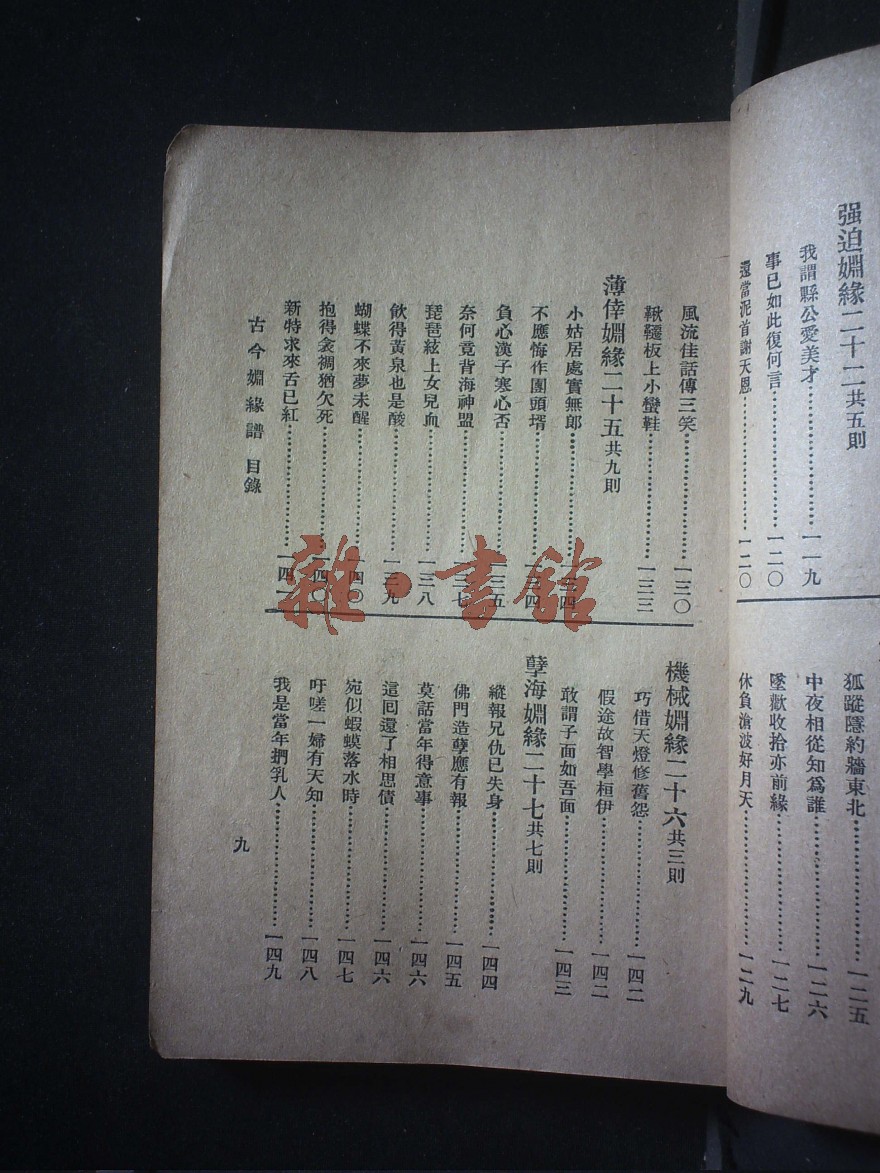 强迫婣緣二十二共五則
我謂縣公愛美才………一一九
事已如此復何言………一二〇
還當泥首謝天恩………一二〇
狐蹤隱約牆東北………一二五
中夜相從知爲誰………一二六
墜歡收拾亦前緣………一二七
休負滄波好月天………一二九
風流佳話傳三笑………一三〇
鞦韆板上小蠻鞋………一三三
薄倖婣緣二十五共九則
小姑居處實無郞………一三四
不應悔作團頭壻………一三四
負心漢子寒心否………一三五
奈何竟背海神盟………一三七
琵琶絃上女兒血………一三八
飮得黃泉也是酸………一三九
蝴蝶不來夢未醒………一四〇
抱得衾裯猶欠死………一四〇
新特求來舌已紅………一四二
機械婣緣二十六共三則
巧借天燈修舊怨………一四二
假途故智學桓伊………一四二
敢謂子面如吾面………一四三
孽海婣緣二十七共七則
縱報兄仇已失身………一四四
佛門造孽應有報………一四五
莫話當年得意事………一四六
這囘還了相思債………一四六
宛似蝦蟆落水時………一四七
吁嗟一婦有天知………一四八
我是當年捫乳人………一四九
古今婣緣譜 目錄
九
雜·書館